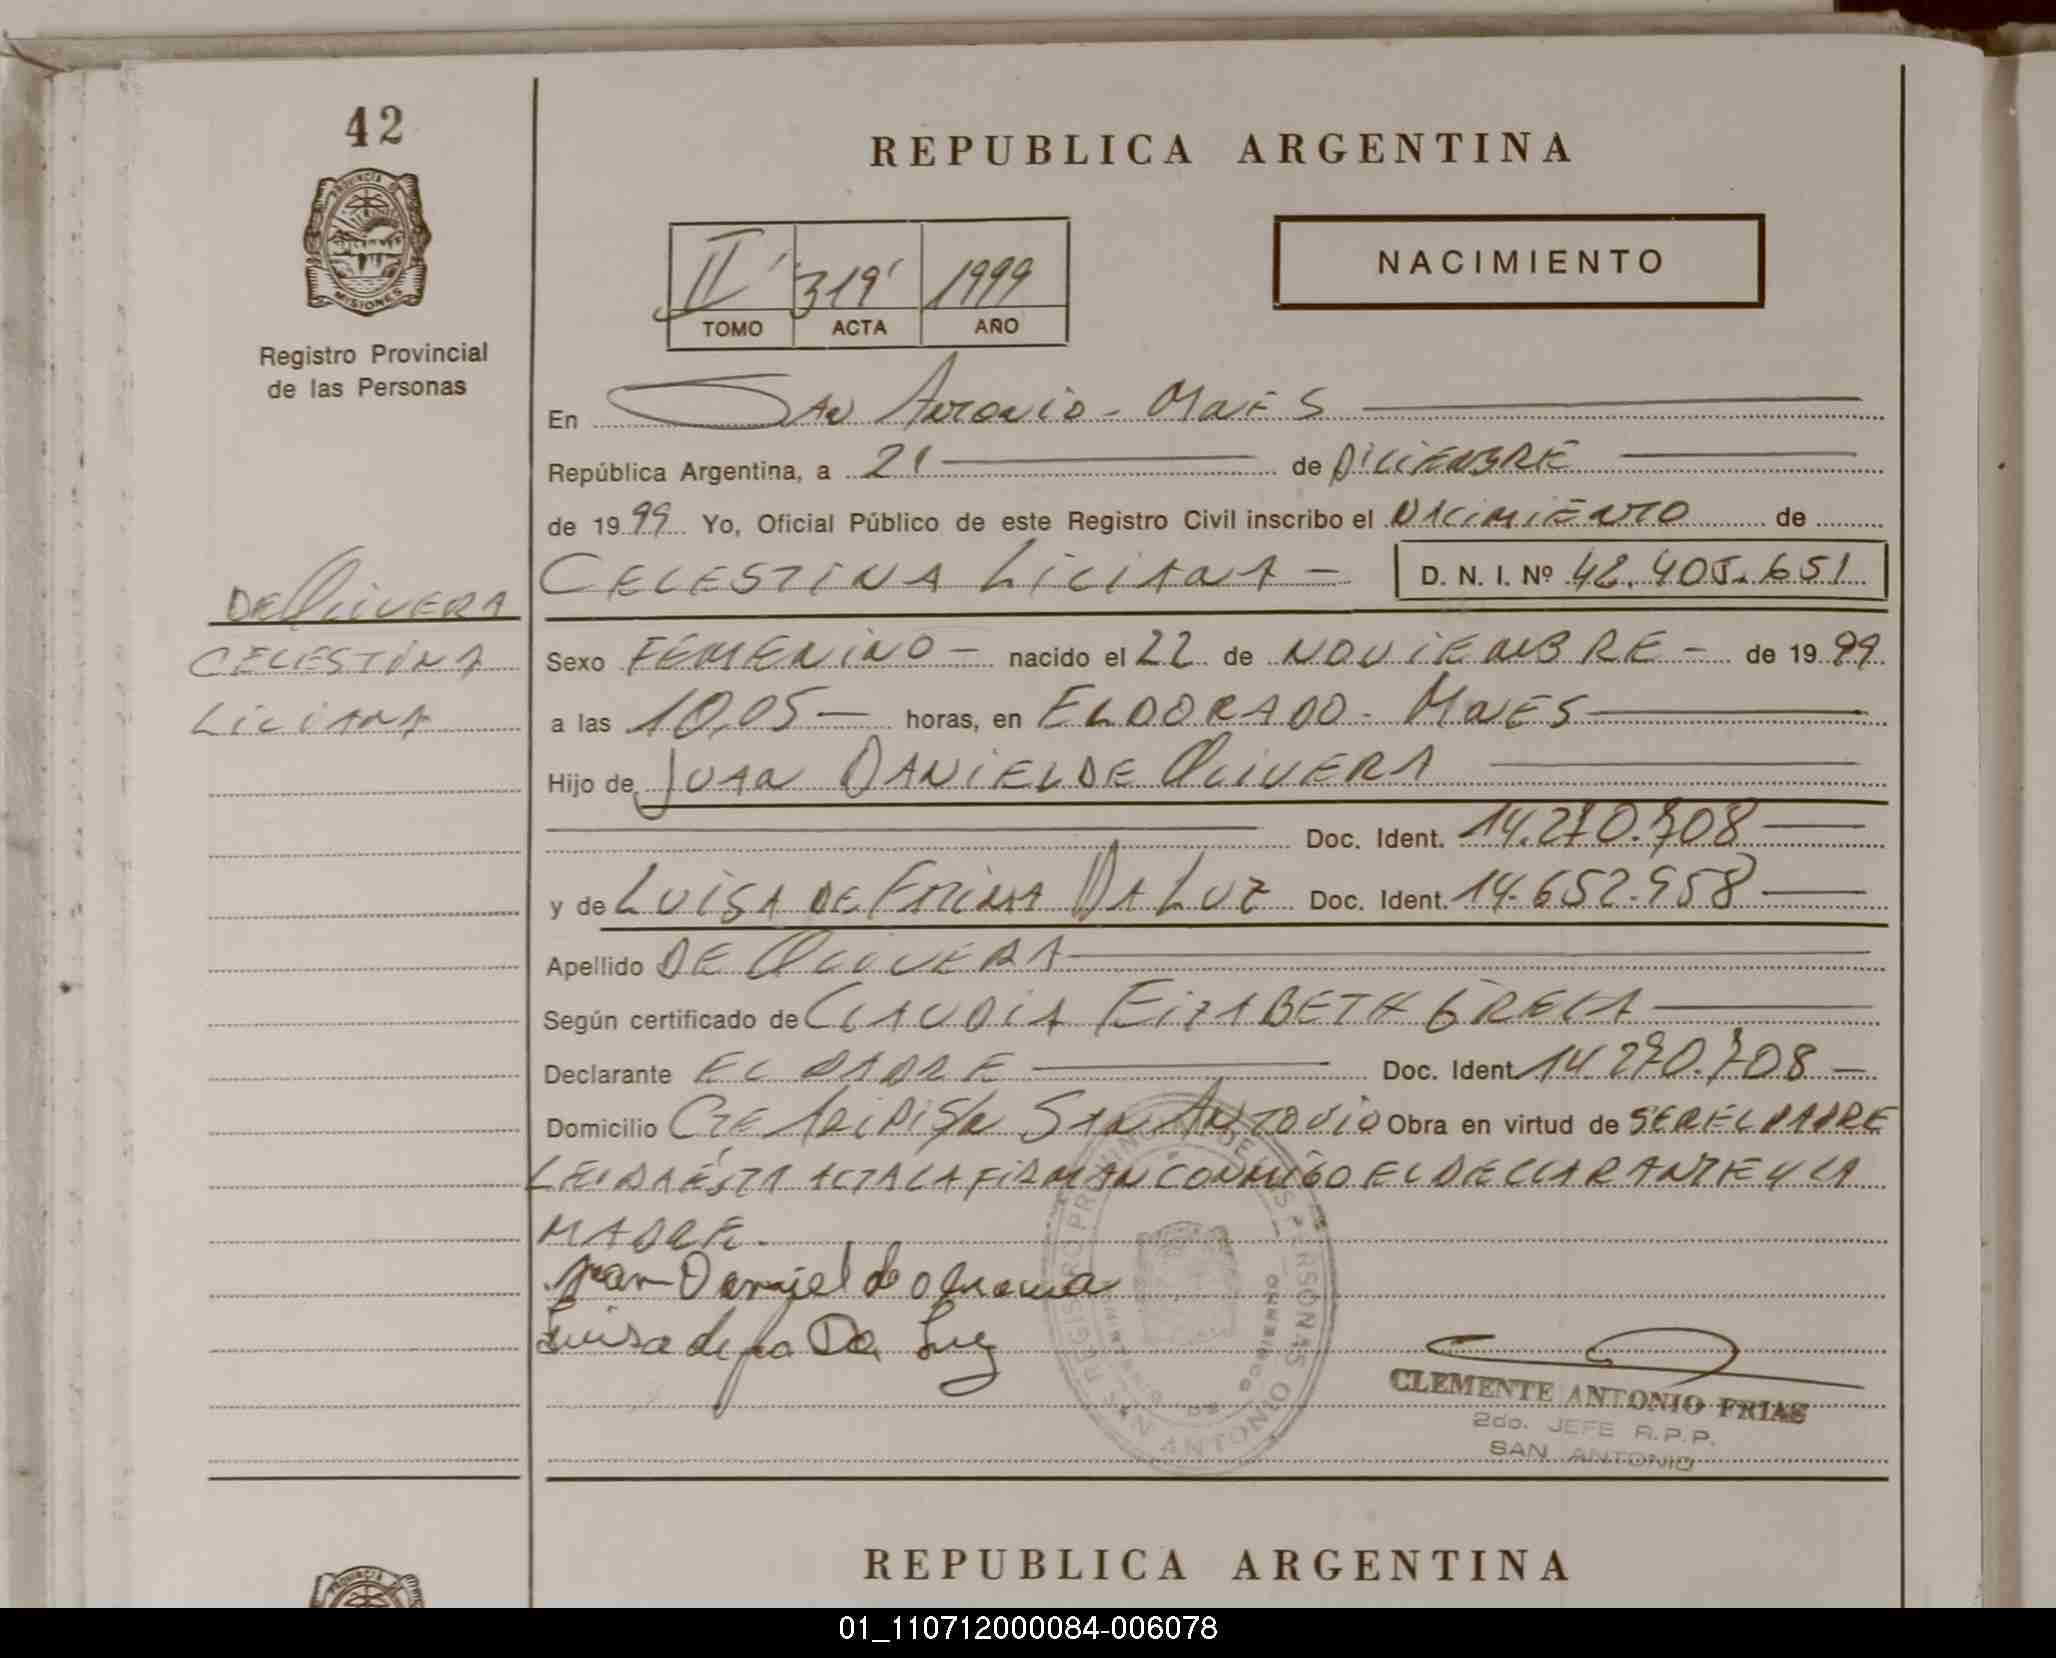 42
REPUBLICA ARGENTINA
PROVINCIA DE
MISIONES
NACIMIENTO
II 319 1999
TOMO ACTA AÑO
Registro Provincial
de las Personas
En San Antonio - Mnes
República Argentina, a 21 de DICIEMBRE
de 1999 Yo, Oficial Público de este Registro Civil inscribo el NACIMIENTO de
CELESTINA LiLiANA - D. N. I. Nº 42.405.651
DE OLiVERA
CELESTINA
LiLiANA
Sexo FEMENiNO - nacido el 22 de NOViEMBRE - de 1999
a las 10,05 - horas, en ELDORADO - MNES
Hijo de JUAN DANiEL DE OLiVERA
Doc. Ident. 14.270.708
y de LUiSA DE FATiMA DA LUZ Doc. Ident. 14.652.958
Apellido DE OLiVERA
Según certificado de CLAUDiA ELiZABETH
Declarante EL PADRE Doc. Ident. 14.270.708 -
Domicilio SAN ANTONiO Obra en virtud de SER EL PADRE
LEiDA ESTA ACTA LA FiRMAN CONMiGO EL DECLARANTE Y LA
MADRE.
Juan Daniel de olivera
Luisa de fa Da Luz
REGISTRO PROVINCIAL DE LAS PERSONAS
SAN ANTONIO
CLEMENTE ANTONIO FRIAS
2do. JEFE R.P.P.
SAN ANTONIO
REPUBLICA ARGENTINA
PROVINCIA DE
01_110712000084-006078